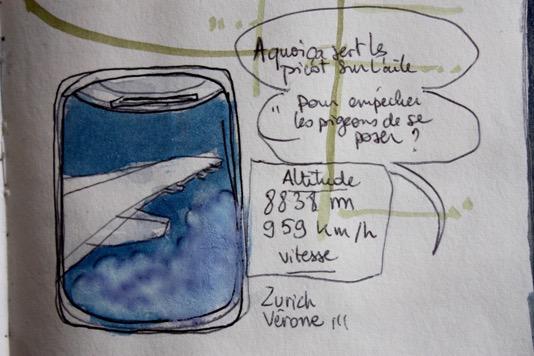 A quoi ça sert les
picot sur l'aile
" pour empécher
les pigeons de se
poser ?
Altitude
8838 m
959 km/h
vitesse
Zurich
Vérone !!!